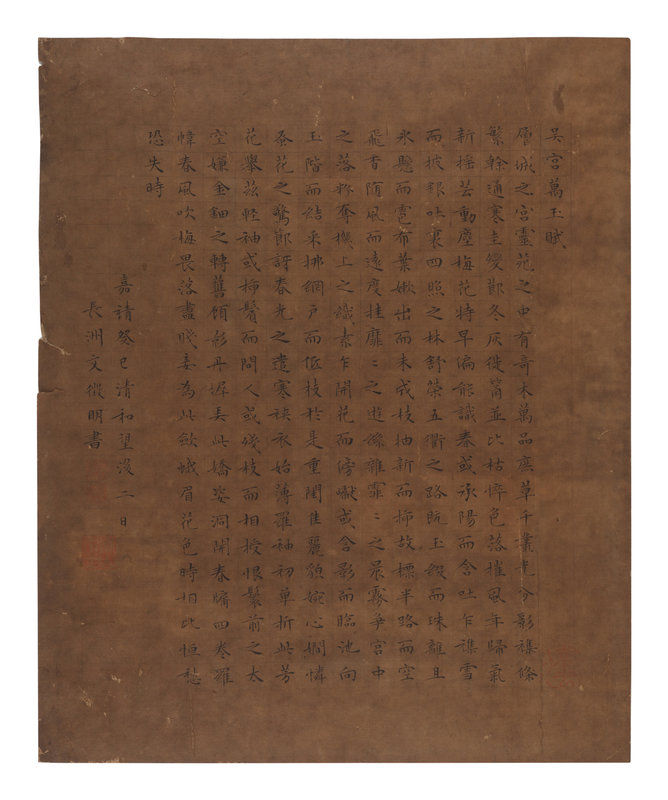 吳宮萬玉賦
層城之宮靈苑之中有奇木萬品庶草千叢光分影雜條
繁幹通寒圭變節冬灰徙筩並比枯悴色落摧風年歸氣
新搖芸動塵梅花特早偏能識春或承陽而含吐乍雜雪
而披銀吐裏四照之林舒榮五衢之路既玉綴而珠離且
氷懸而雹布葉嫩出而未成枝抽新而插故摽半路而空
飛香隨風而遠度挂靡〻之遊絲雜霏〻之晨霧爭宮中
之落粉奪機上之織素乍開花而傍巘或含影而臨池向
玉階而結采拂網戶而低枝於是重閨佳麗貌婉心嫻憐
蚤花之驚節訝春光之遣寒裌衣始薄羅袖初單折此芳
花舉茲輕袖或插鬢而問人或殘枝而相授恨鬟前之太
空嫌金鈿之轉舊顧影丹墀弄此嬌姿洞開春牖四卷羅
幃春風吹梅畏落盡賤妾為此歛蛾眉花色時相比恒愁
恐失時
嘉靖癸巳清和望後二日
長洲文徵明書